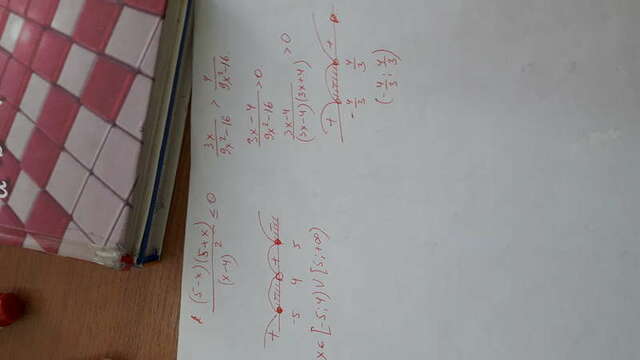 (5-x)(5+x)/(x-4)² ≤ 0
+ - + -
-5 4 5
x∈[-5;4)∪[5;+∞)
3x/(9x²-16) > 4/(9x²-16)
(3x-4)/(9x²-16) > 0
(3x-4)/((3x-4)(3x+4)) > 0
+ - +
-4/3 4/3
(-4/3; 4/3)